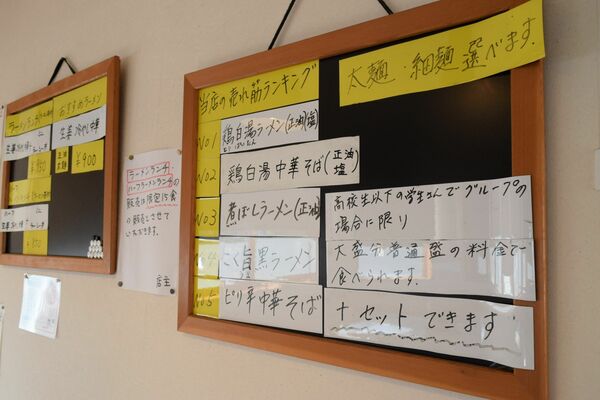 ラーメンランチ
おすすめラーメン
正油
¥950
¥900
ラーメンランチ、
ハーフラーメンランチの
販売は限定15食
の販売とさせて
いただきます。
店主
当店の売れ筋ランキング
太麺・細麺選べます。
No1 鶏白湯ラーメン(正油/塩)
とりぱいたん
No2 鶏白湯中華そば(正油
塩)
No3 煮ぼしラーメン(正油)
No4 こく旨黒ラーメン
No5 ピリ辛中華そば
高校生以下の学生さんでグループの
場合に限り
大盛分普通盛の料金で
食べられます。
+セットできます